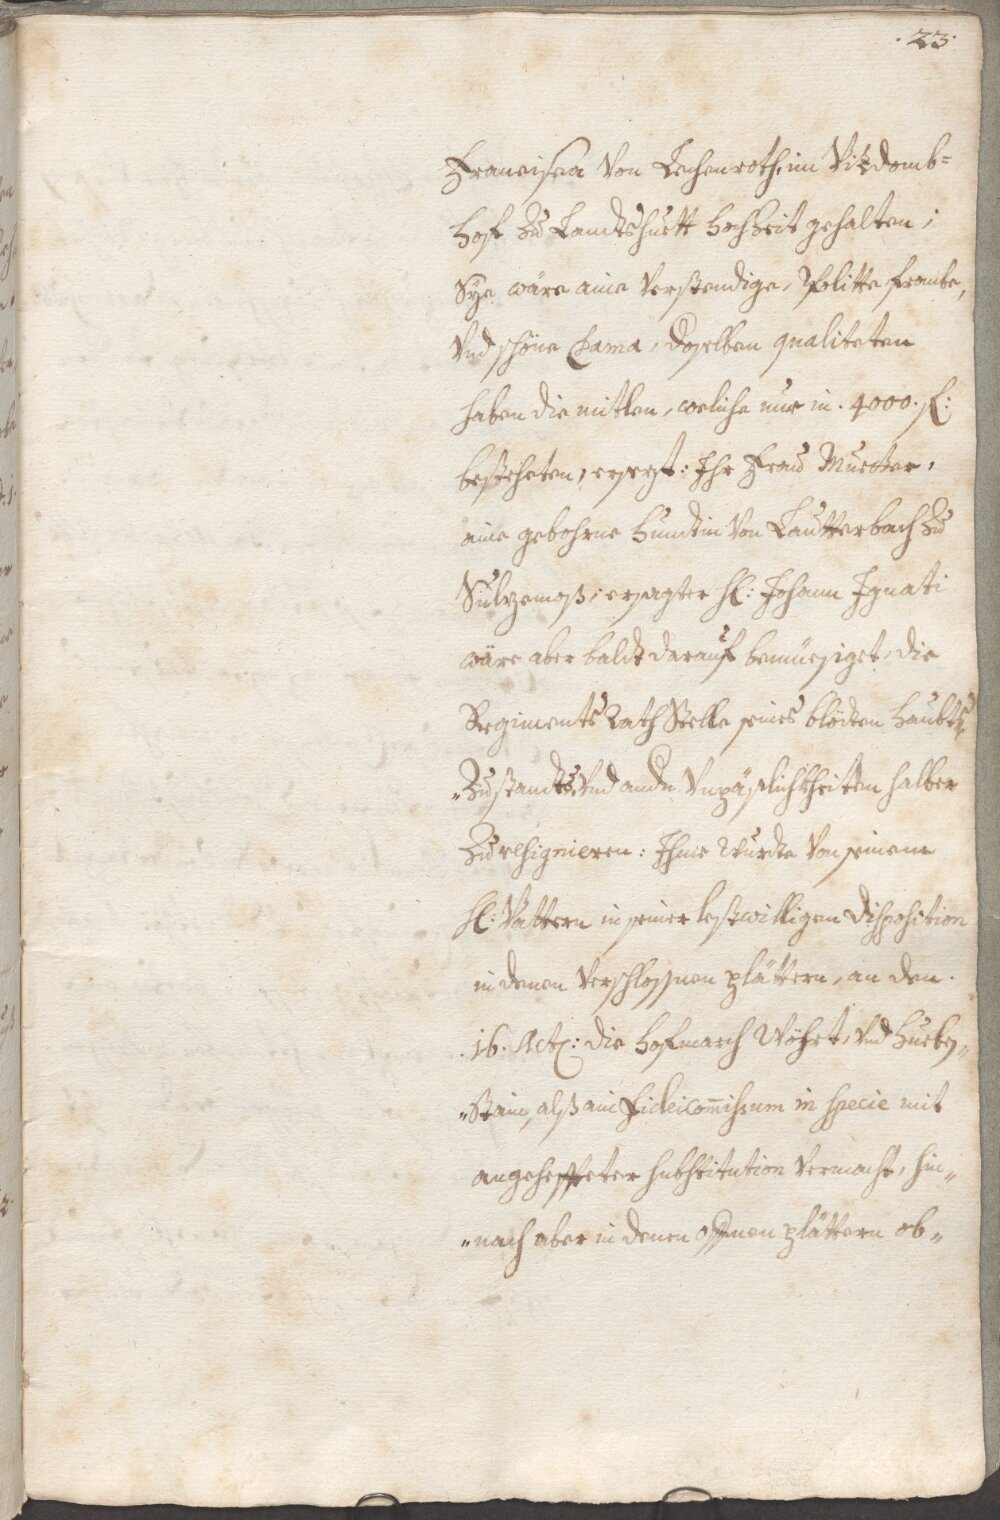 . 23 .
Francisca Von Lechenroth, im Vizdomb=
hof zu Landtshuett hochzeit gehalten;
Sye wäre aine Verstendige, Politte franke,
Und schöne Dama, doselben qualiteten
haben die mitlen, weliche nur in . 4000. fl:
besteheten, ersezt: Ihr Frau Muetter,
aine gebohrne Hundtin Von Lautterbach zu
Sulzemoß, ersagter H: Johann Ignati
wäre aber baldt darauf bemüessiget, die
Regiments Rath Stelle seines blöden Haubts„
„zustandts Und andn Unpäslichkheitten halber
zu resignieren: Ihme wurdte Von seinem
H: Vattern in seiner lestwilligen disposition
in denen Verschlossnen plättern, an dem
. 16. die Hofmarch Wöhrt, Und
„Stain, alß ain Fideicom̅issum in specie mit
angeheffteter substitution Vermacht, hin„
„nach aber in denen offnen plättern ob„